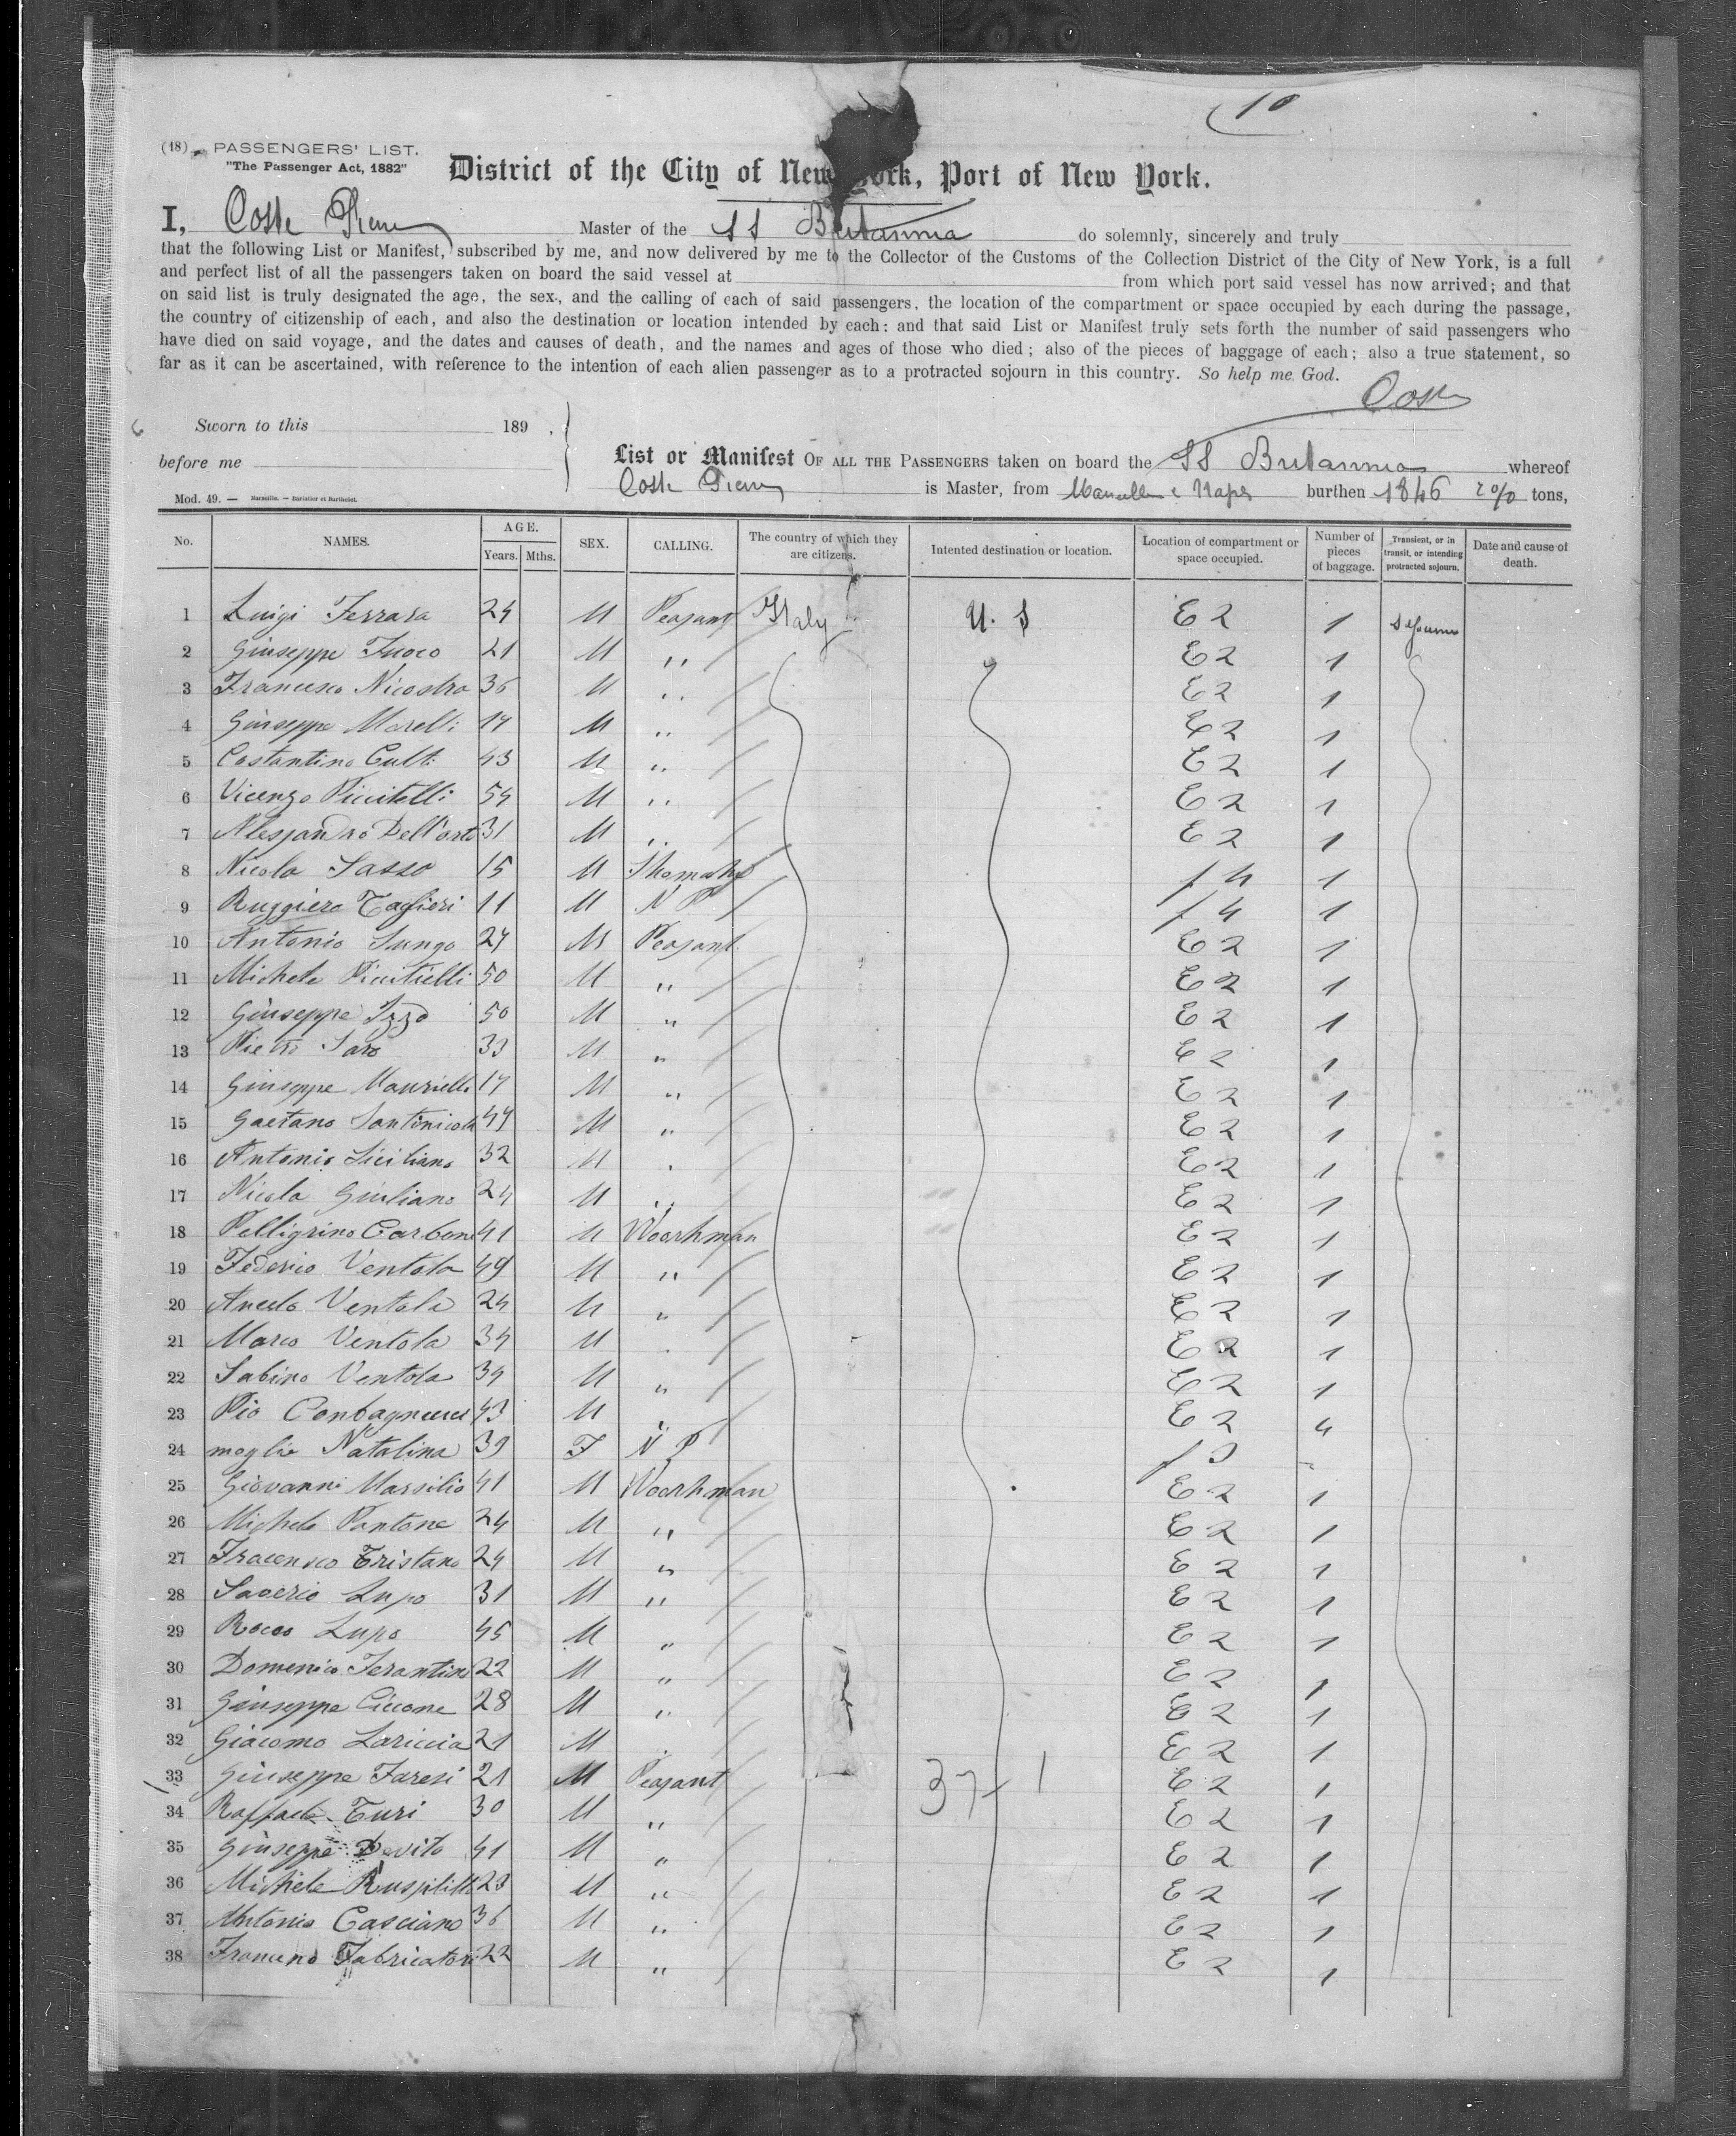 10
(18) PASSENGERS' LIST.
"The Passenger Act, 1882"
District of the City of New York, Port of New York.
I, Coste Master of the SS Britannia do solemnly, sincerely and truly
that the following List or Manifest, subscribed by me, and now delivered by me to the Collector of the Customs of the Collection District of the City of New York, is a full
and perfect list of all the passengers taken on board the said vessel at from which port said vessel has now arrived; and that
on said list is truly designated the age, the sex, and the calling of each of said passengers, the location of the compartment or space occupied by each during the passage,
the country of citizenship of each, and also the destination or location intended by each: and that said List or Manifest truly sets forth the number of said passengers who
have died on said voyage, and the dates and causes of death, and the names and ages of those who died; also of the pieces of baggage of each; also a true statement, so
far as it can be ascertained, with reference to the intention of each alien passenger as to a protracted sojourn in this country. So help me God.
Coste
Sworn to this 189 .
before me
List or Manifest OF ALL THE PASSENGERS taken on board the SS Britannia whereof
Coste is Master, from Marseille & Naples burthen 1846 tons,
Mod. 49. — Marseille. — Barlatier et Barthelet.
No. NAMES. AGE. Years. Mths. SEX. CALLING. The country of which they are citizens. Intented destination or location. Location of compartment or space occupied. Number of pieces of baggage. Transient, or in transit, or intending protracted sojourn. Date and cause of death.
1 Luigi Ferrara 24 M Peasant Italy U.S E2 1 Sojourn
2 Giuseppe Fuoco 21 M " E2 1
3 Francesco Nicostro 36 M " E2 1
4 Giuseppe Morelli 17 M " E2 1
5 Costantino 43 M " E2 1
6 Vicenzo Piccitelli 54 M " E2 1
7 Alessandro Dell'orto 31 M " E2 1
8 Nicola Sasso 15 M f 4 1
9 Ruggiero Taglieri 11 M N P f 4 1
10 Antonio 27 M Peasant E2 1
11 Michele Piccitielli 50 M " E2 1
12 Giuseppe Izzo 50 M " E2 1
13 Pietro Saro 33 M " E2 1
14 Giuseppe Mauriello 17 M " E2 1
15 Gaetano Santinicola 47 M " E2 1
16 Antonio Siciliano 32 M " E2 1
17 Nicola Giuliano 24 M " E2 1
18 Pelligrino Carbone 41 M Woorhman E2 1
19 Federico Ventola 49 M " E2 1
20 Ventola 24 M " E2 1
21 Marco Ventola 34 M " E2 1
22 Sabino Ventola 34 M " E2 1
23 Pio 43 M " E2 4
24 moglie Natalina 39 F N P f 3 -
25 Giovanni Marsilio 41 M Woorhman E2 1
26 Michele Pantone 24 M " E2 1
27 Fracensco Tristano 24 M " E2 1
28 Saverio Lupo 31 M " E2 1
29 Rocco Lupo 45 M " E2 1
30 Domenico 22 M " E2 1
31 Giuseppe Ciccone 28 M " E2 1
32 Giacomo Lariccia 21 M " E2 1
33 Giuseppe Faresi 21 M Peasant 37 1 E2 1
34 Raffaele Turi 30 M " E2 1
35 Giuseppe Devito 41 M " E2 1
36 Michele 23 M " E2 1
37 Antonio Casciano 36 M " E2 1
38 Fabricatori 22 M " E2 1